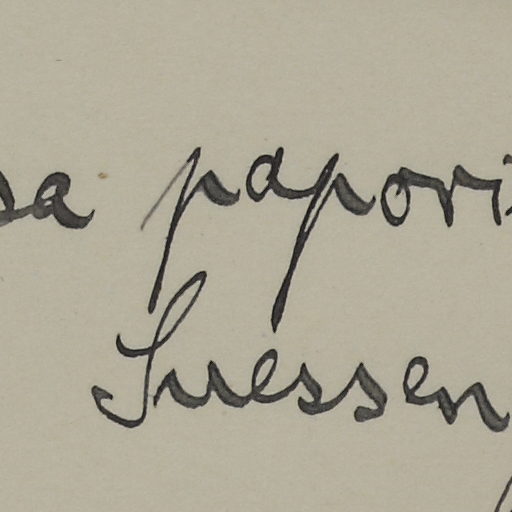 sa papori
Suessen